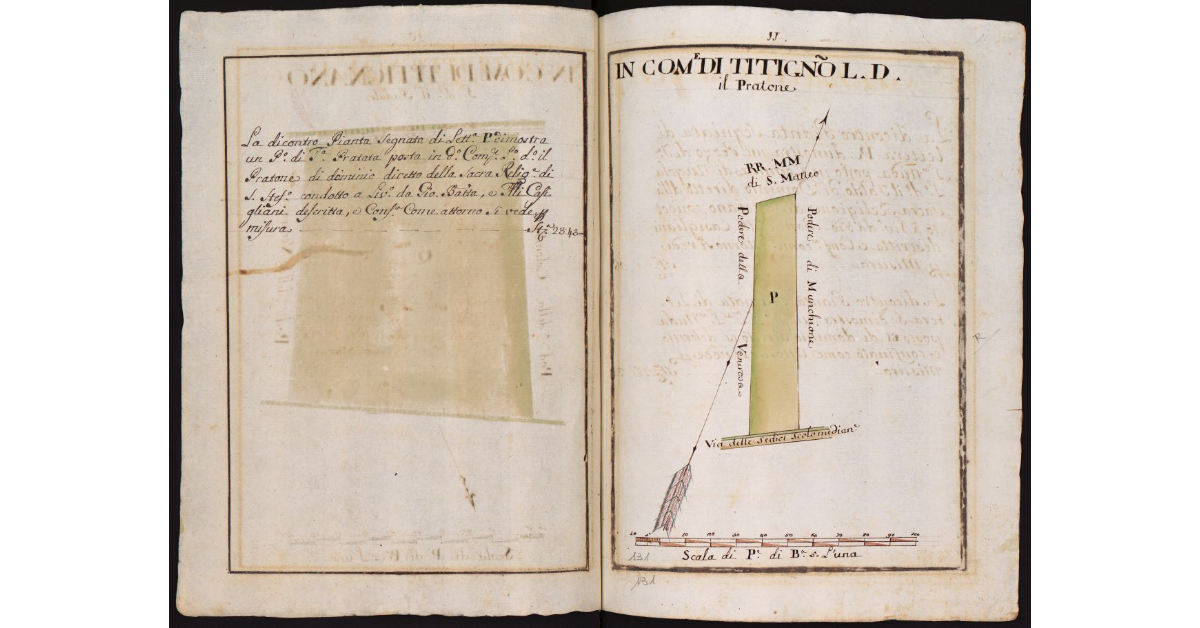 La dicontro Pianta Segnata di Lett.ª P dimostra
un P.º di T.ª Pratata posta in d.º Com.e L.º d.º il
Pratone di dominio diretto della Sacra Relig.e di
S. Stef.º condotto a Liv.º da Gio. Batta, e Flli Casi
gliani descritta, e Conf.ta Come attorno si vede
misura St.ª 28:48
11.
IN COM.E DI TITIGNÕ L. D.
il Pratone
RR. MM
di S. Matteo
Podere della Venerosa
P
Podere di Munchione
Via delle Sedici Scolo median.e
20 10 20 30 40 50 60 70 80 90 100
Scala di P.e di B.a 5. l'una
131
131
R